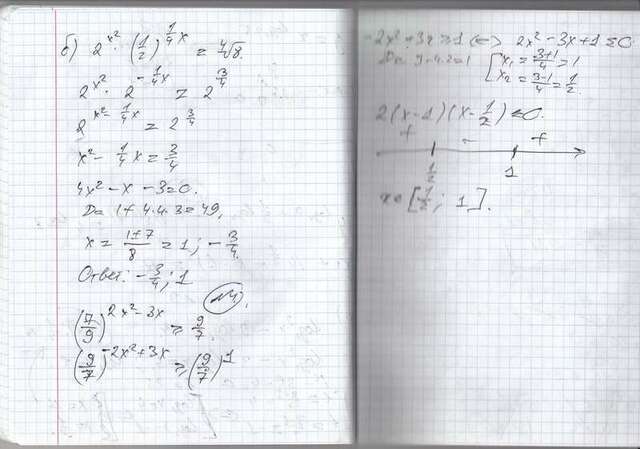 б) 2^{x²} · (1/2)^{1/4 x} = ⁴√8.
2^{x²} · 2^{-1/4 x} = 2^{3/4}
2^{x² - 1/4 x} = 2^{3/4}
x² - 1/4 x = 3/4
4x² - x - 3 = 0.
D = 1 + 4·4·3 = 49,
x = (1±7)/8 = 1; -3/4.
Ответ: -3/4; 1
№4.
(7/9)^{2x² - 3x} ≥ 9/7.
(9/7)^{-2x² + 3x} ≥ (9/7)^1
-2x² + 3x ≥ 1 (=) 2x² - 3x + 1 ≤ 0
D = 9 - 4·2 = 1 [x₁ = (3+1)/4 = 1
x₂ = (3-1)/4 = 1/2.
2(x - 1)(x - 1/2) ≤ 0.
+ - +
1/2 1
x ∈ [1/2; 1].